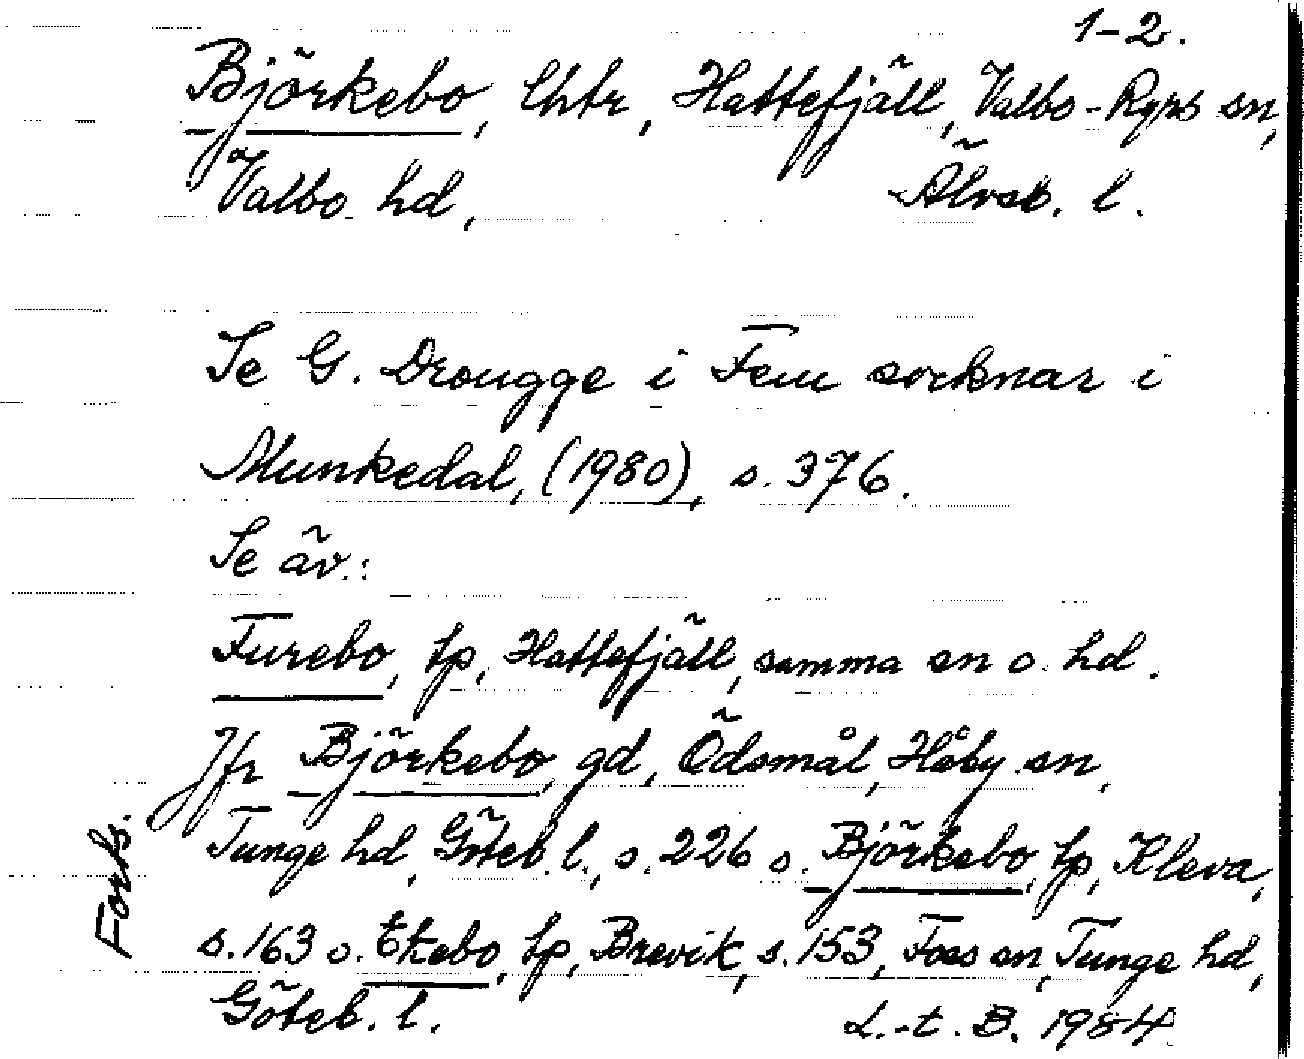 1-2.
Björkebo, lhtr, Hattefjäll, Valbo-Ryrs sn,
Valbo hd, Älvsb. l.
Se G. Drougge i Fem socknar i
Munkedal, (1980), s. 376.
Se äv.:
Furebo, tp, Hattefjäll, samma sn o. hd.
Jfr Björkebo, gd, Ödsmål, Håby sn,
Tunge hd, Göteb. l., s. 226 o. Björkebo, tp, Kleva,
s. 163 o. Ekebo, tp, Brevik, s. 153, Foss sn, Tunge hd,
Göteb. l. L.-t. B. 1984.
Forts.